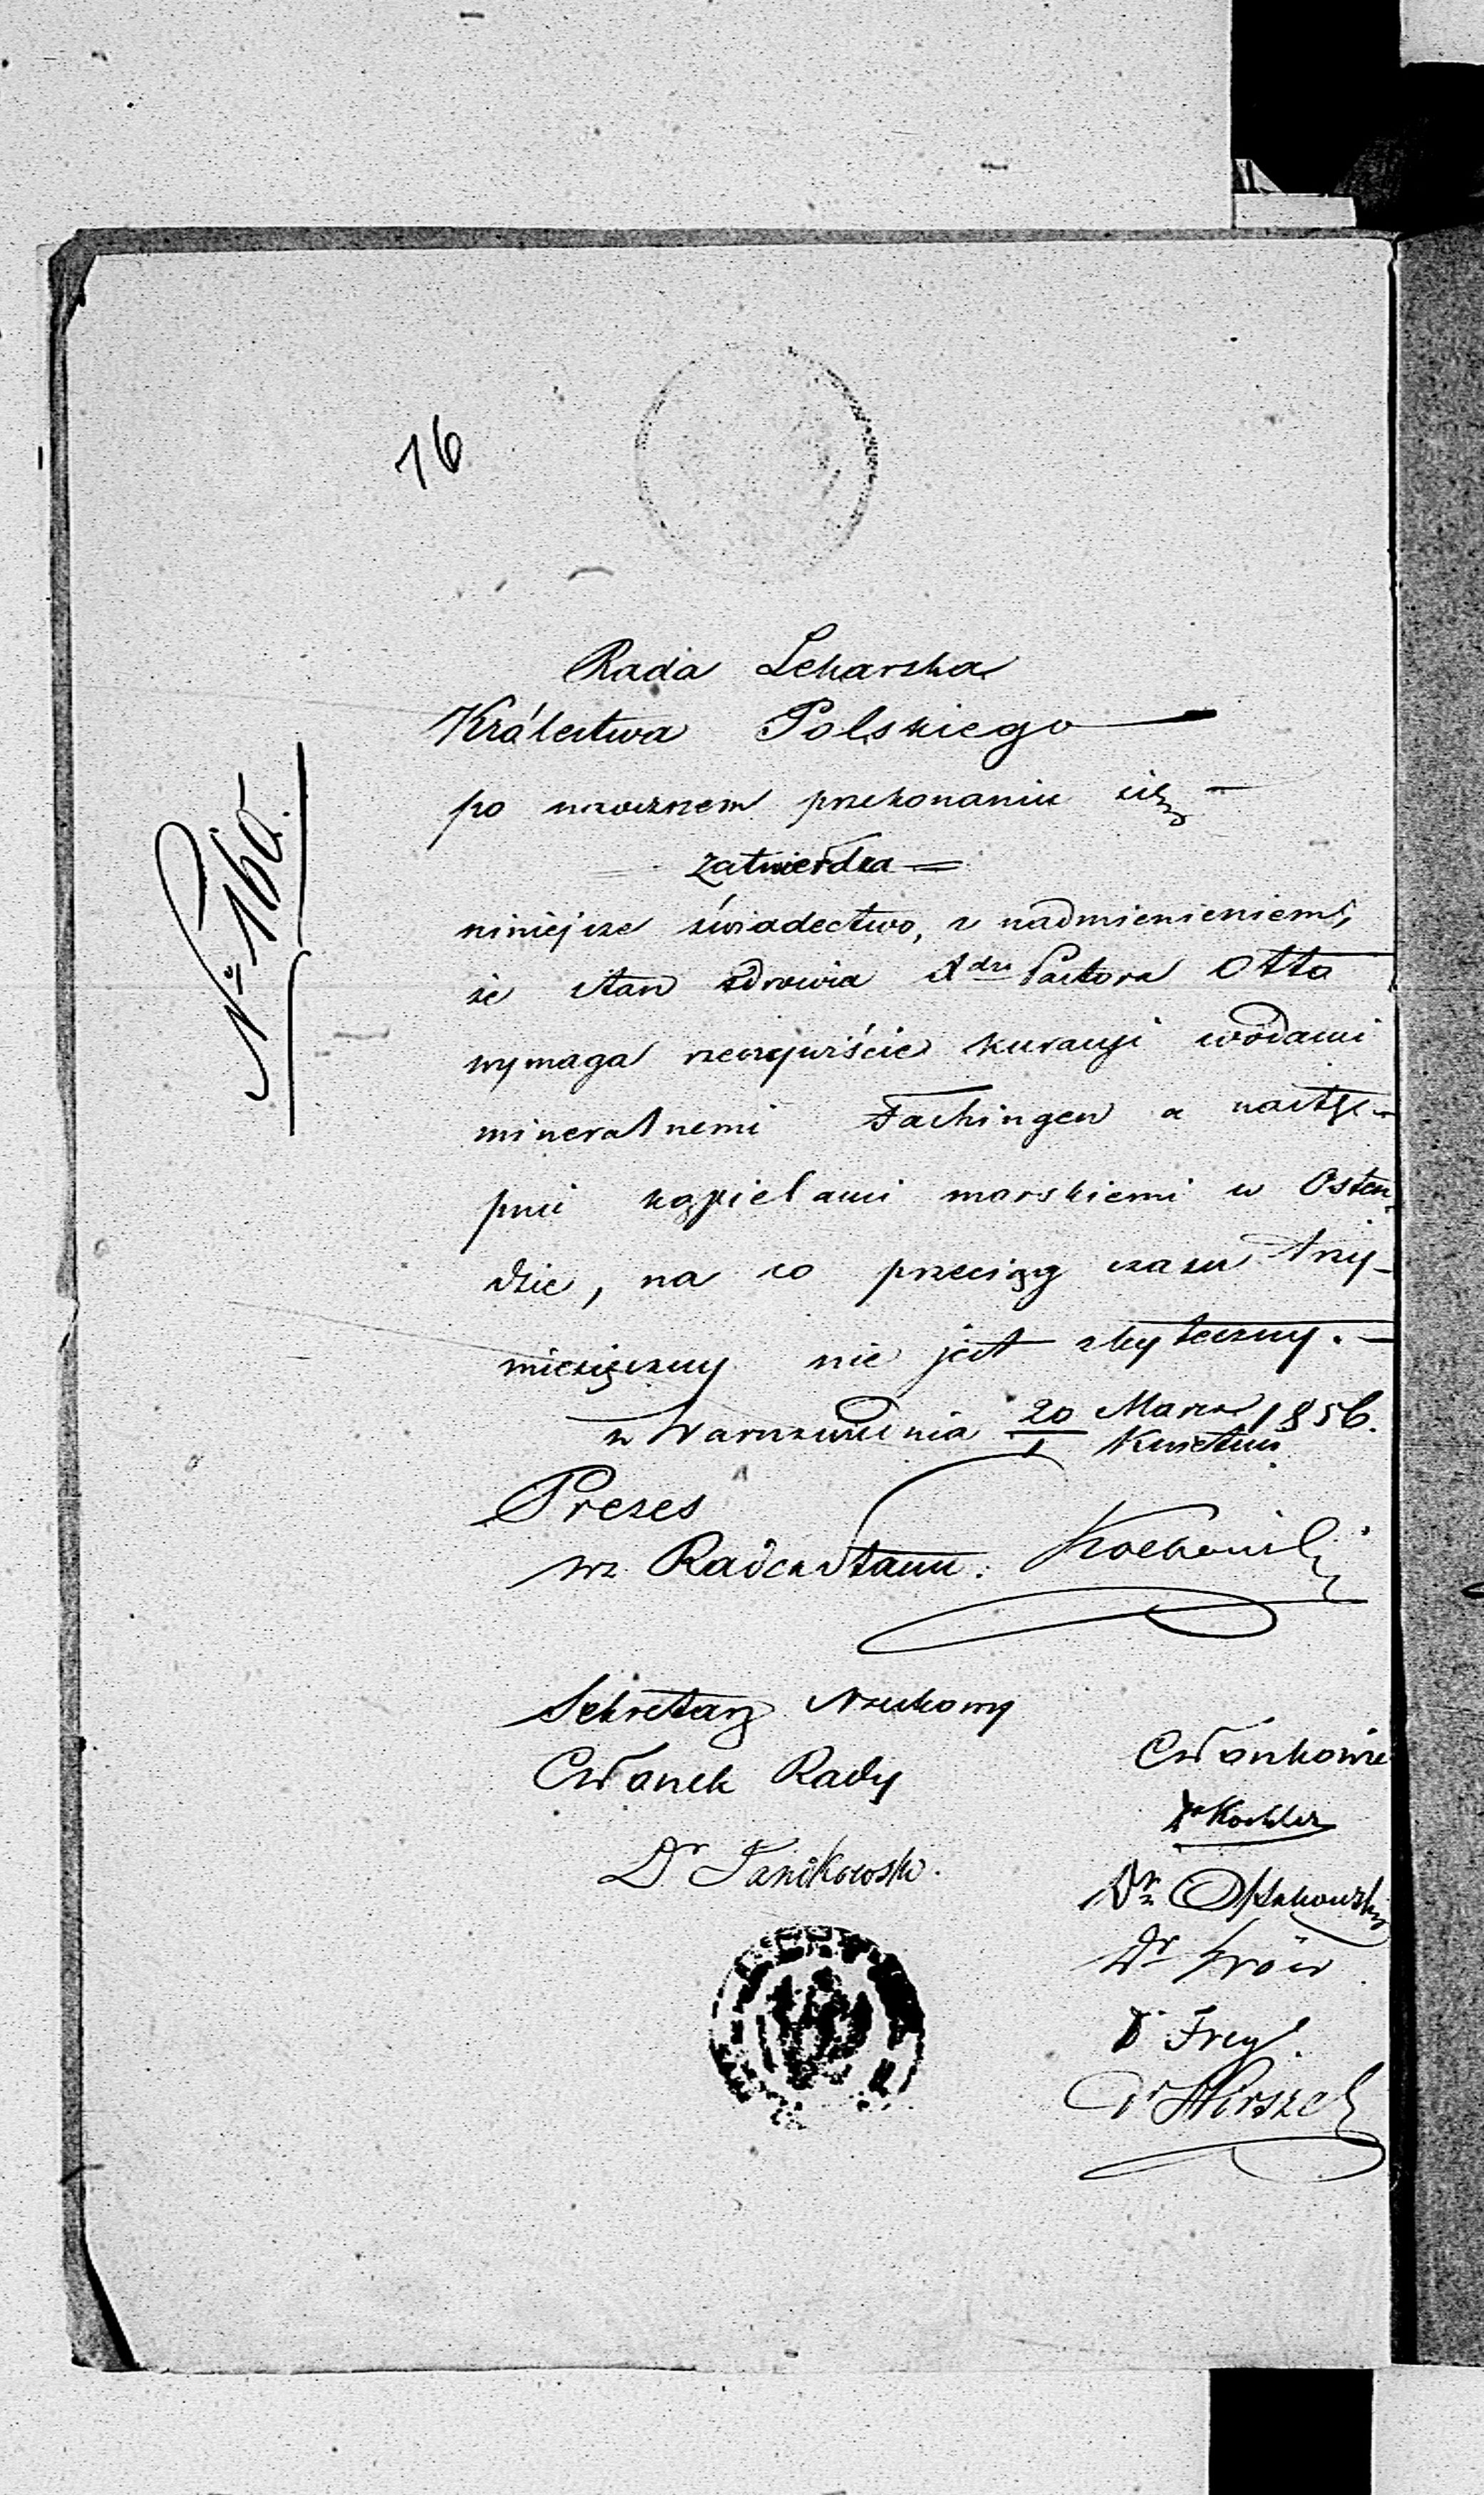 16
No 160.
Rada Lekarska
Królestwa Polskiego
po naocznem przekonaniu się
zatwierdza
niniejsze świadectwo, z nadmienieniem,
że stan zdrowia Pastora Otto
wymaga rzeczywiście kuracyi wodami
mineralnemi Fachingen a nastę-
pnie kąpielami morskiemi w Osten-
dzie, na co przeciąg czasu trzy-
miesięczny nie jest zbyteczny. —
w Warszawie dnia 20 Marca / 1 Kwietnia 1856.
Prezes
wz. Radca Stanu.
Sekretarz Naukowy
Członek Rady
Dr Janikowski.
Członkowie
Dr Koehler
Dr
Dr
Dr Frey
Dr Hirszel